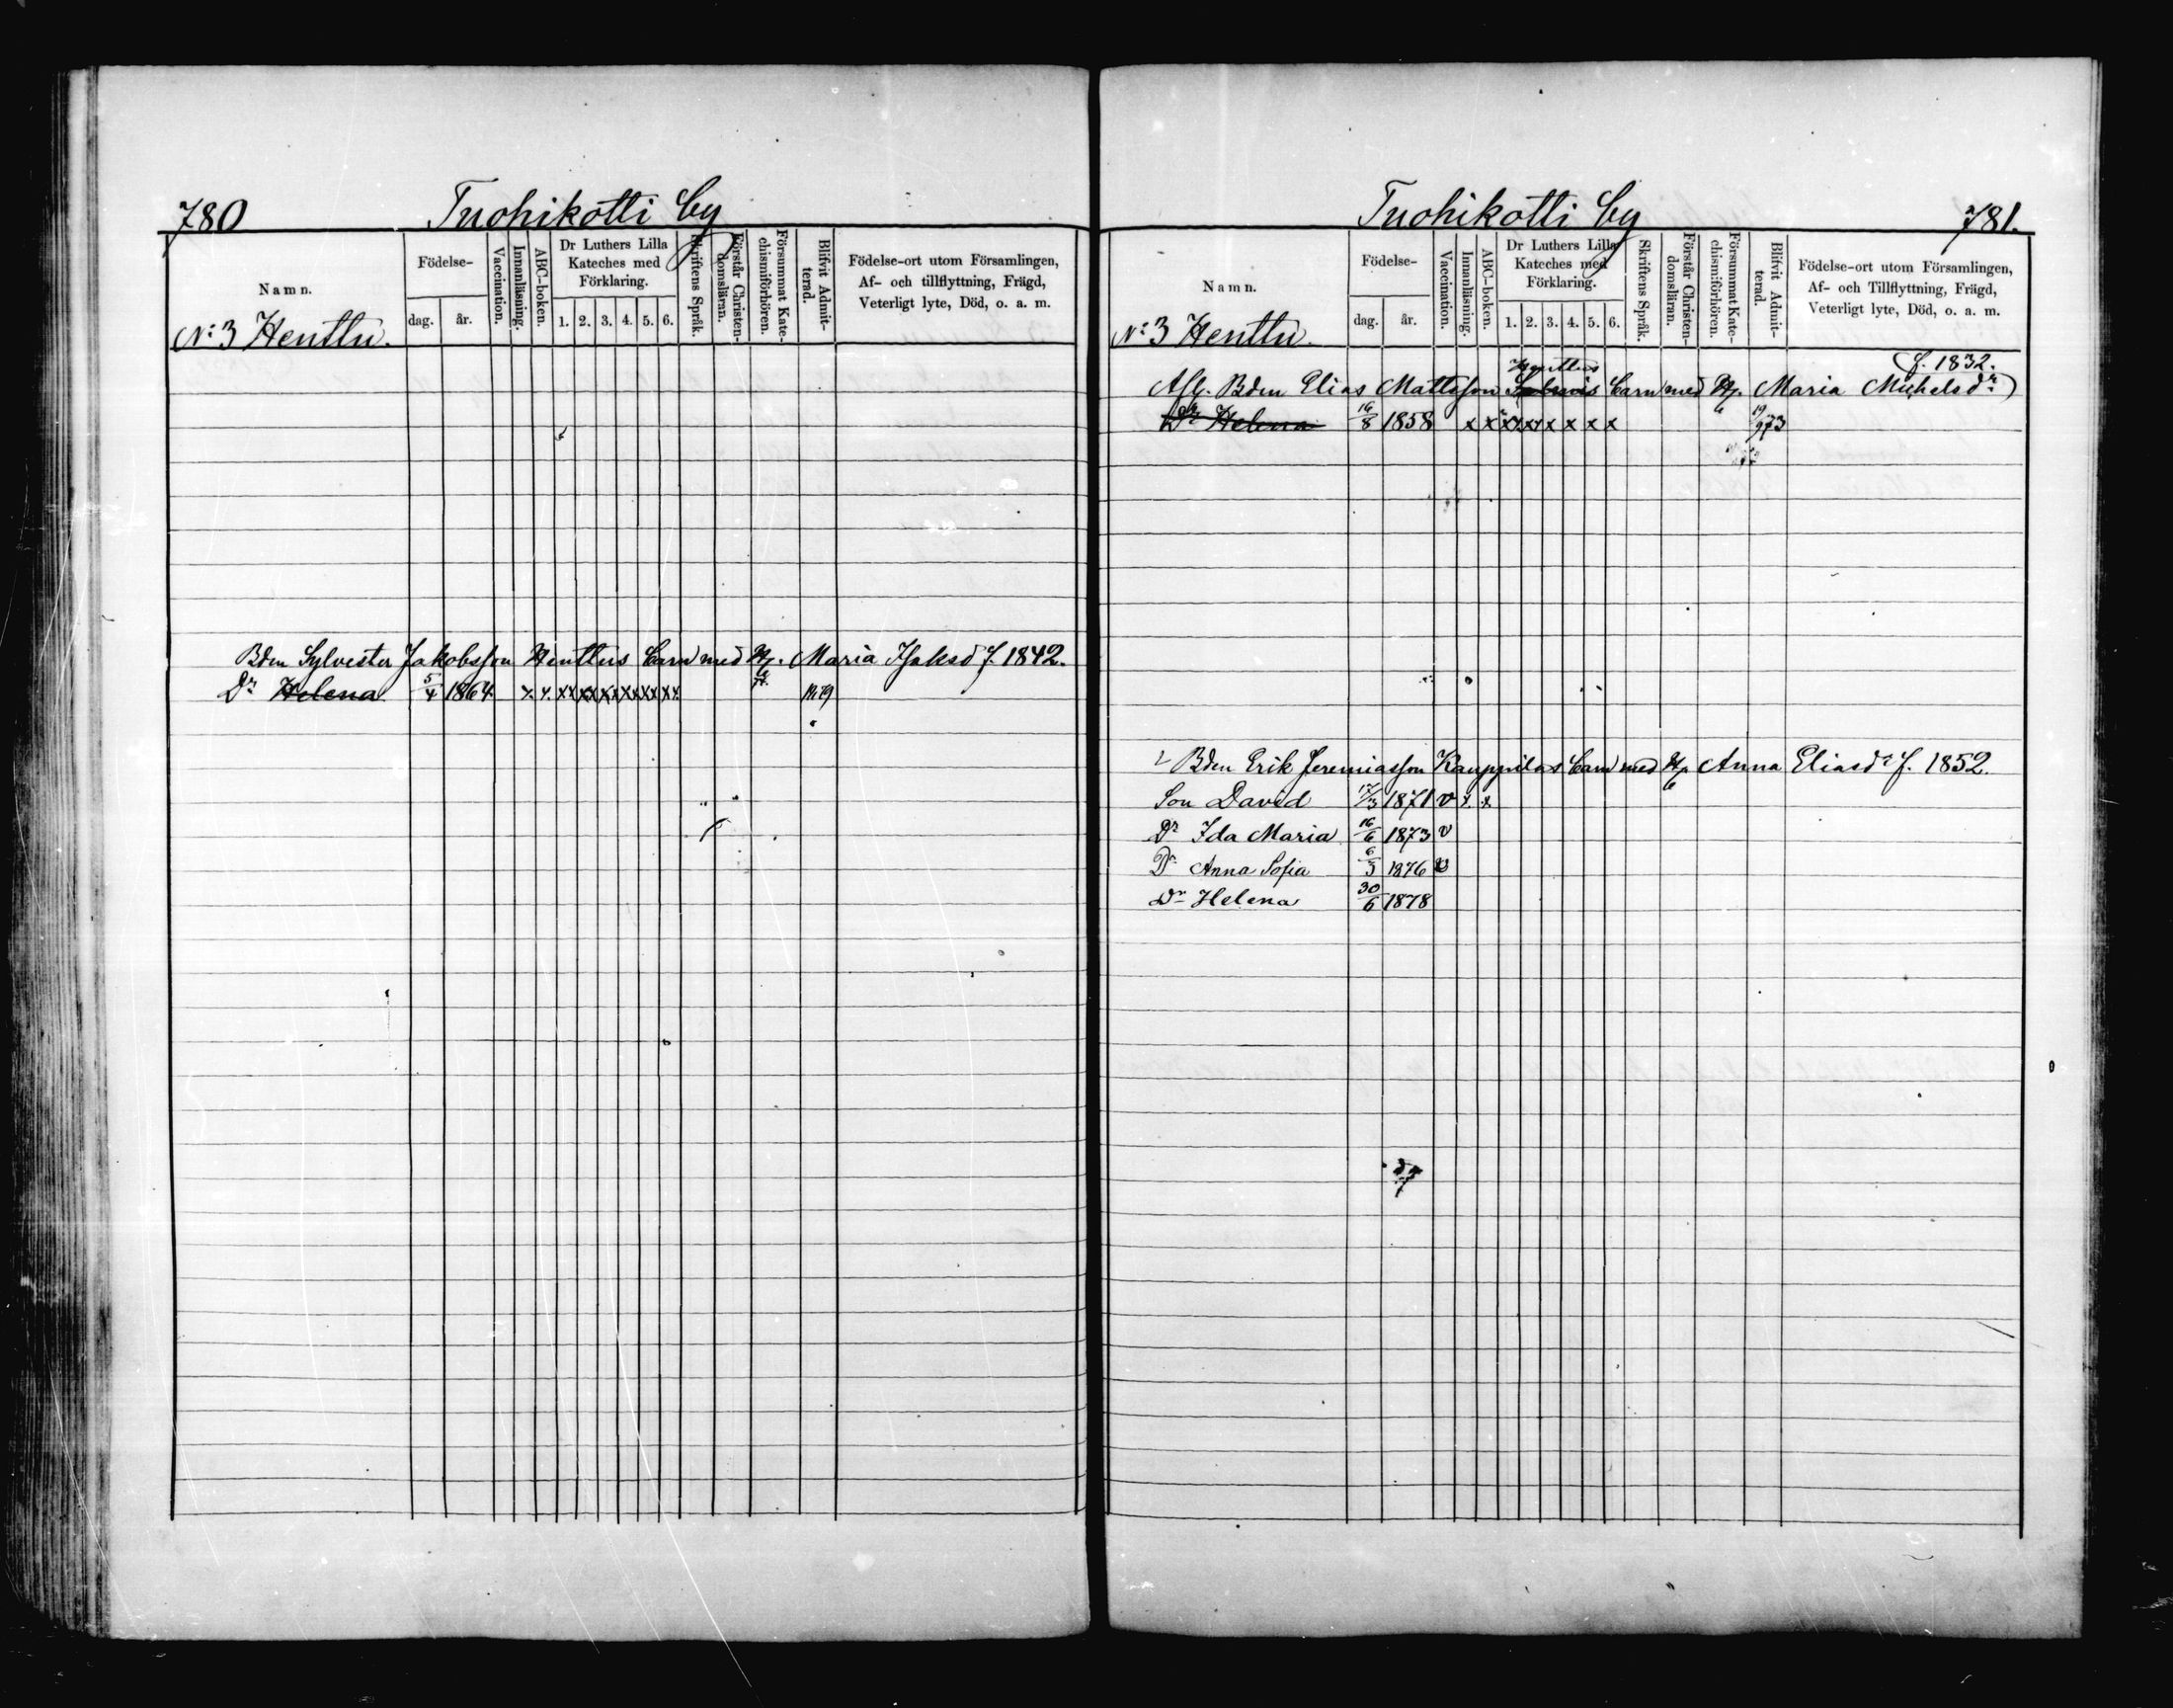 780 Tuohikotti by
Namn.
Födelse-
dag. år.
Vaccination.
Innanläsning.
ABC-boken.
Dr Luthers Lilla
Kateches med
Förklaring.
1. 2. 3. 4. 5. 6.
Skriftens Språk.
Förstår Christen-
domsläran.
Försummat Kate-
chismiförhören.
Blifvit Admit-
terad.
Födelse-ort utom Församlingen,
Af- och tillflyttning, Frägd,
Veterligt lyte, Död, o. a. m.
No: 3 Henttu.
Bden Sylvester Jakobsson Henttus barn med H. Maria Isaksd f. 1842.
Dr Helena 5/4 1864. x x xx xx xx xx xx xx 1879
Tuohikotti by 781.
Namn.
Födelse-
dag. år.
Vaccination.
Innanläsning.
ABC-boken.
Dr Luthers Lilla
Kateches med
Förklaring.
1. 2. 3. 4. 5. 6.
Skriftens Språk.
Förstår Christen-
domsläran.
Försummat Kate-
chismiförhören.
Blifvit Admit-
terad.
Födelse-ort utom Församlingen,
Af- och Tillflyttning, Frägd,
Veterligt lyte, Död, o. a. m.
No: 3 Henttu.
Henttus f. 1832.
Afl. Bden Elias Mattsson barn med H. Maria Michelsdr)
Dr Helena 16/8 1858 x x x x x x x x 19/9 73
Bden Erik Jeremiasson Kauppilas barn med H. Anna Eliasdr f. 1852.
Son David 17/3 1871 v x x
Dr Ida Maria 16/6 1873 v
Dr Anna Sofia 6/3 1876 v
Dr Helena 30/6 1878